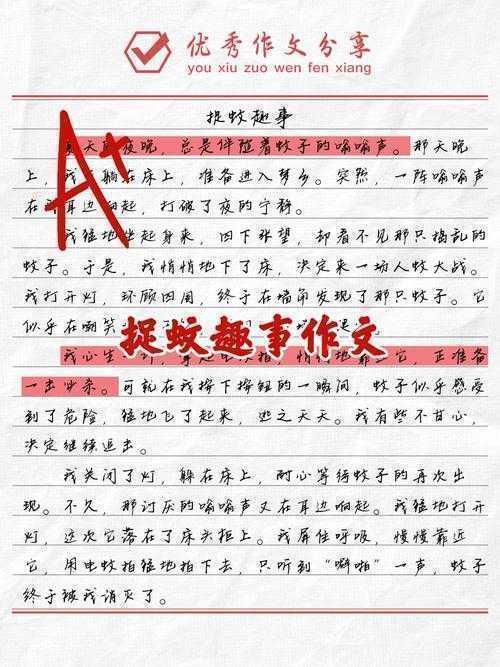 优秀作文分享
you xiu zuo wen fen xiang
捉蚊趣事
天 夜晚，总是伴随着蚊子的嗡嗡声。那天晚
上，我 躺在床上，准备进入梦乡。突然，一阵嗡嗡声
在 耳边响起，打破了夜的宁静。
A+
我猛地坐起身来，四下张望，却看不见那只捣乱的
蚊子。于是，我悄悄地下了床，决定来一场人蚊大战。
我打开灯，环顾四周，终于在墙角发现了那只蚊子。它
似乎在嘲笑
捉蚊趣事作文
我心生一 ，拿起电蚊拍，悄悄地靠近它，正准备
一击必杀。可就在我按下按钮的一瞬间，蚊子似乎感受
到了危险，猛地飞了起来，逃之夭夭。我有些不甘心，
决定继续追击。
我关闭了灯，躺在床上，耐心等待蚊子的再次出
现。不久，那讨厌的嗡嗡声又在耳边响起。我猛地打开
灯，这次它落在了床头柜上。我屏住呼吸，慢慢靠近
它，用电蚊拍猛地拍下去，只听到“噼啪”一声，蚊子
终于被我消灭了。